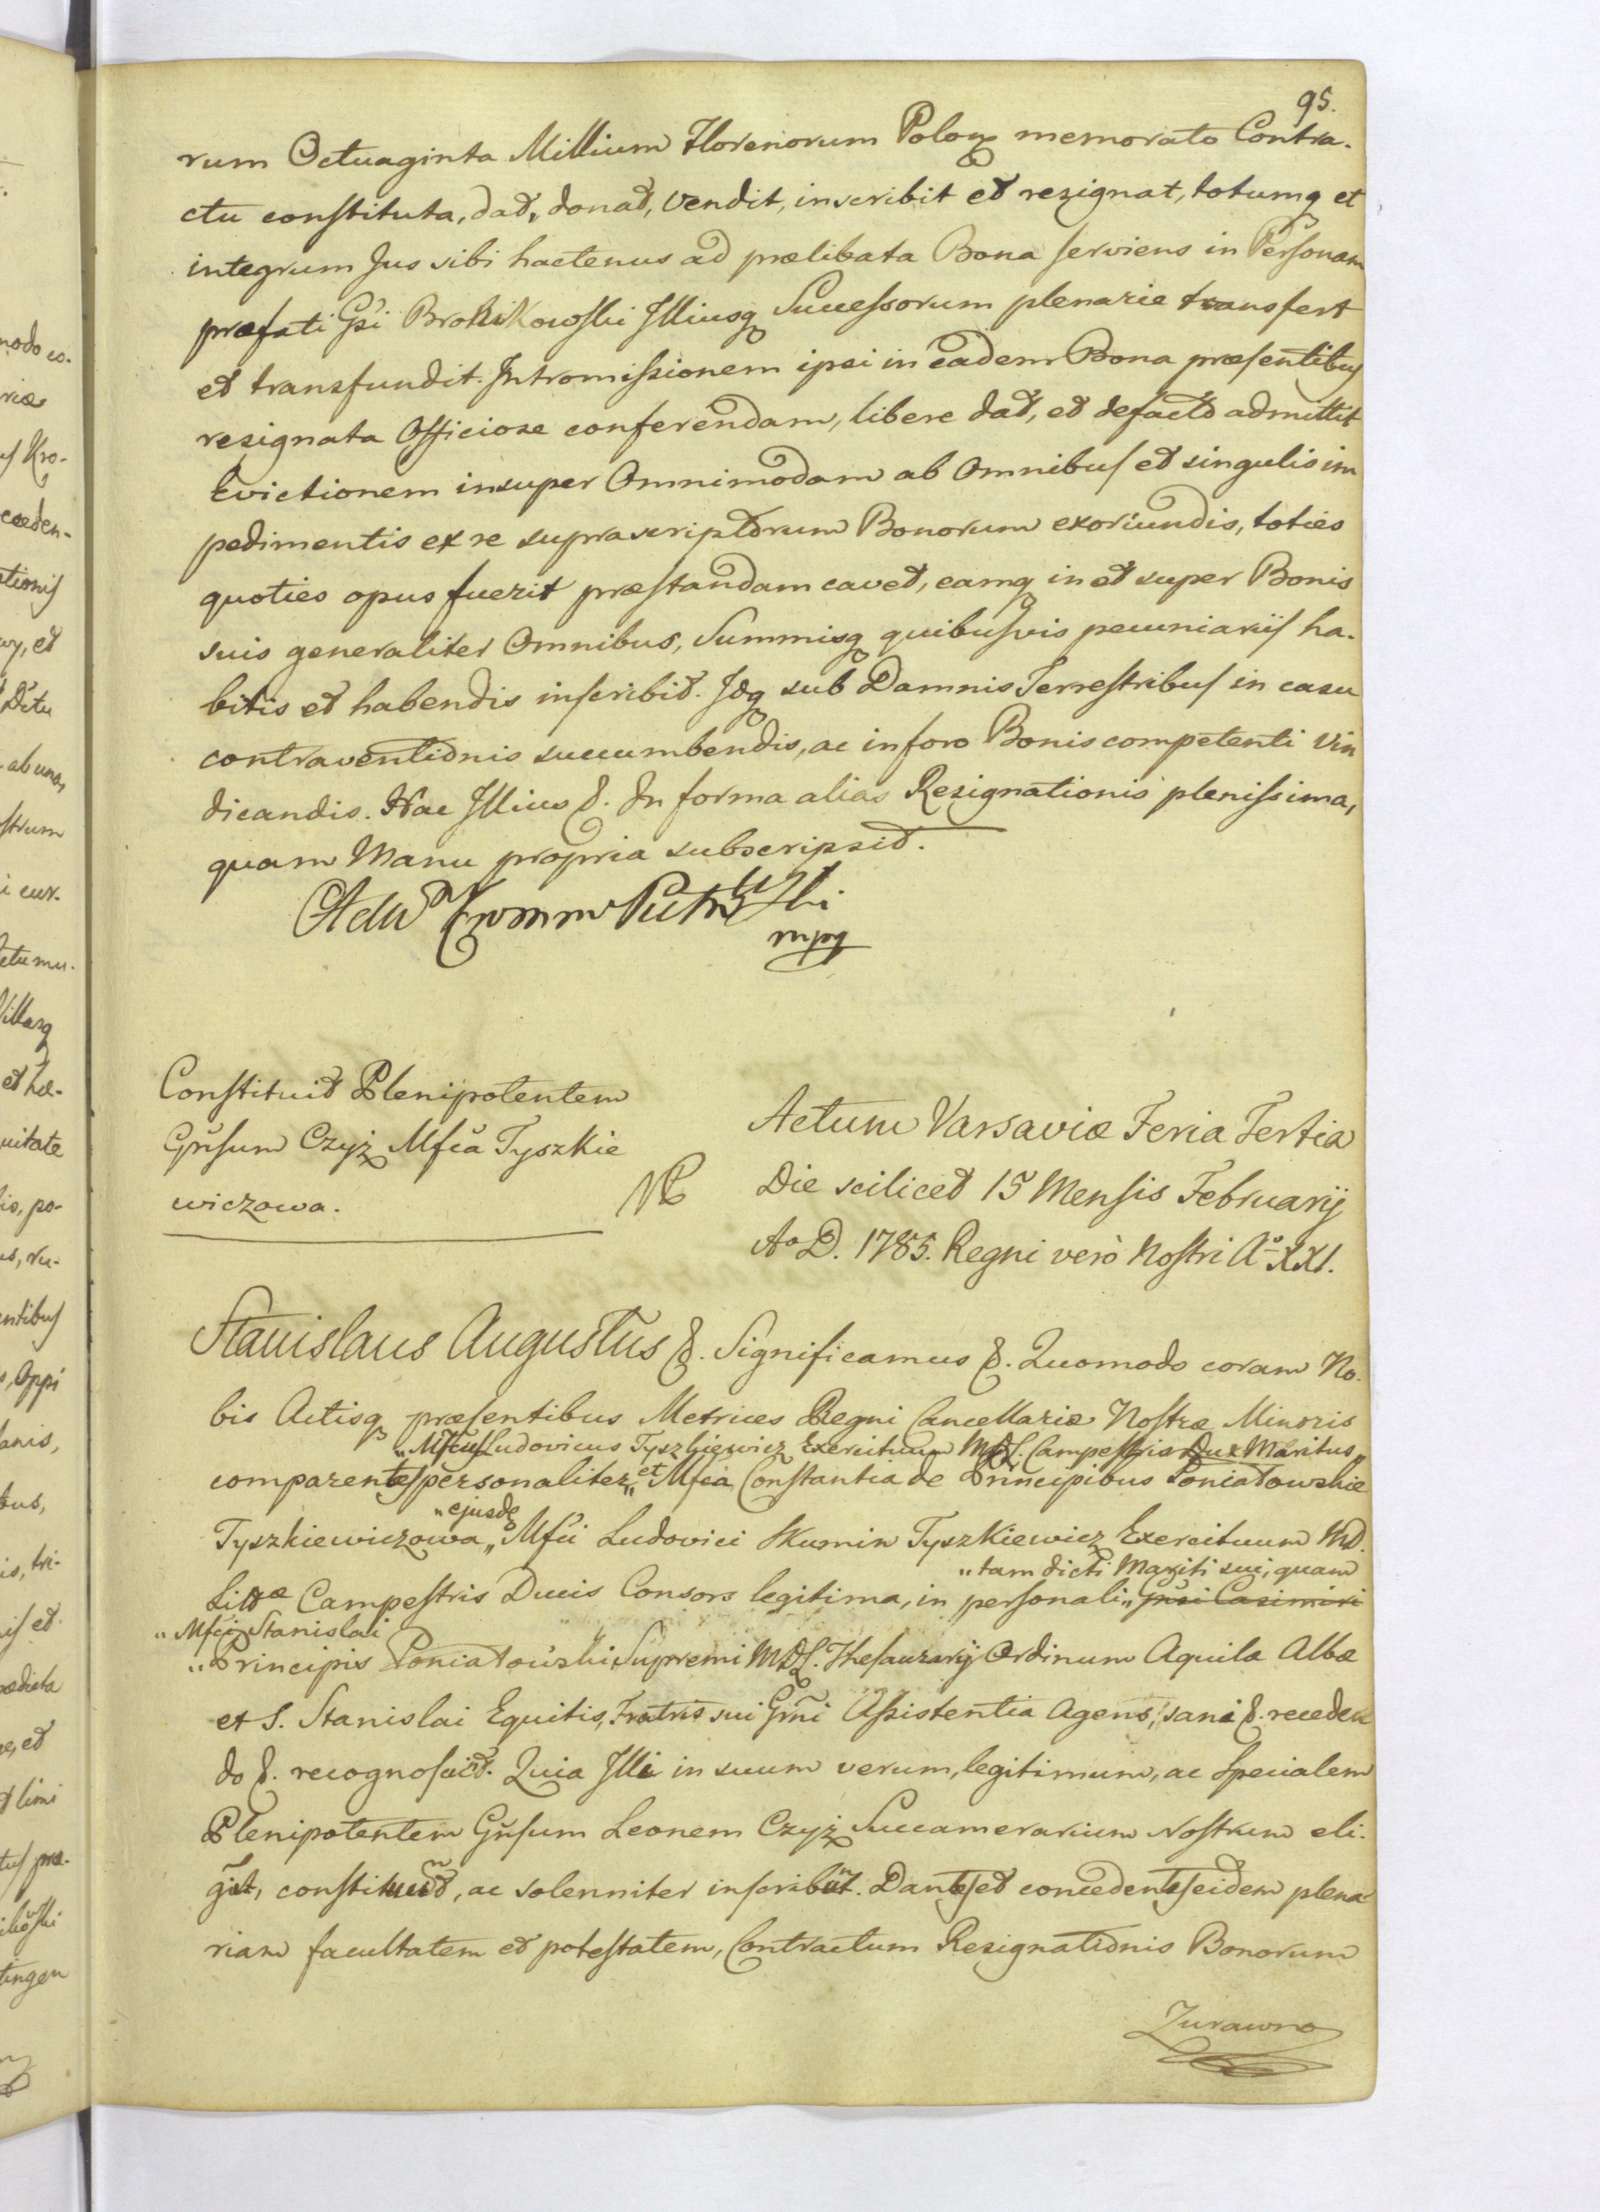 95.
rum Octuaginta Millium Florenorum Polon memorato Contra-
ctu constituta, dat, donat, vendit, inscribit et rezignat, totumq et
integrum Jus sibi hactenus ad prælibata Bona serviens in Personam
præfati Gsi Illiusq Successorum plenarie transfert
et transfundit. Intromissionem ipsi in eadem Bona præsentibus
resignata Officiose conferendam, libere dat, et defacto admittit
Evictionem insuper Omnimodam ab Omnibus et singulis im
pedimentis ex re suprascriptorum Bonorum exoriundis, toties
quoties opus fuerit præstandam cavet, eamq in et super Bonis
suis generaliter Omnibus, Summisq quibusvis pecuniariis ha-
bitis et habendis inscribit. Idq sub Damnis Terrestribus in casu
contraventionis succumbendis, ac in foro Bonis competenti vin
dicandis. Hac Illius &. In forma alias Rezignationis plenissima,
quam Manu propria subscripsit.
mpq
Constituit Plenipotentem
Gnsum Czyż Mfca Tyszkie
wiczowa.
Actum Varsaviæ Feria Tertia
Die scilicet 15 Mensis Februarij
Ao D. 1785. Regni verò Nostri Aº XXI.
Stanislaus Augustus &. Significamus &. Quomodo coram No-
bis Actisq præsentibus Metrices Regni Cancellariæ Nostræ Minoris
"Mfcus Ludovicus Tyszkiewicz Exercituum MDL. Campestris Dux Maritus"
comparentes personaliter, "et Mfca Constantia de Principibus Poniatowskie
"ejusde
Tyszkiewiczowa, "Mfci Ludovici Skumin Tyszkiewicz Exercituum MD.
"tam dicti Mariti sui, quam
Littæ Campestris Ducis Consors legitima, in personali "Gnsi Casimiri
"Mfci Stanislai
"Principis Poniatowski Supremi MDL. Thesaurarij Ordinum Aquilæ Albæ
et S. Stanislai Equitis, Fratris sui Grni Assistentia Agens, sani &. receden
do &. recognoscit. Quia Illi in suum verum, legitimum, ac Specialem
Plenipotentem Gnsum Leonem Czyż Succamerarium Nostrum eli-
gunt, constituunt, ac solenniter inscribunt. Dantes et concedentes eidem plena
riam facultatem et potestatem, Contractum Rezignationis Bonorum
Zurawno